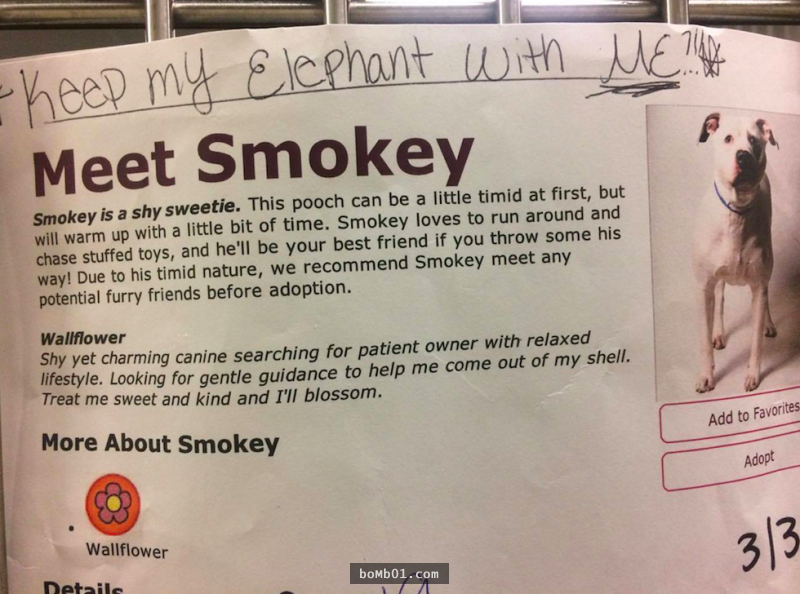 Keep my Elephant with ME...!!
Meet Smokey
Smokey is a shy sweetie. This pooch can be a little timid at first, but
will warm up with a little bit of time. Smokey loves to run around and
chase stuffed toys, and he'll be your best friend if you throw some his
way! Due to his timid nature, we recommend Smokey meet any
potential furry friends before adoption.
Wallflower
Shy yet charming canine searching for patient owner with relaxed
lifestyle. Looking for gentle guidance to help me come out of my shell.
Treat me sweet and kind and I'll blossom.
Add to Favorites
Adopt
More About Smokey
Wallflower
3/3
Details
boMb01.com